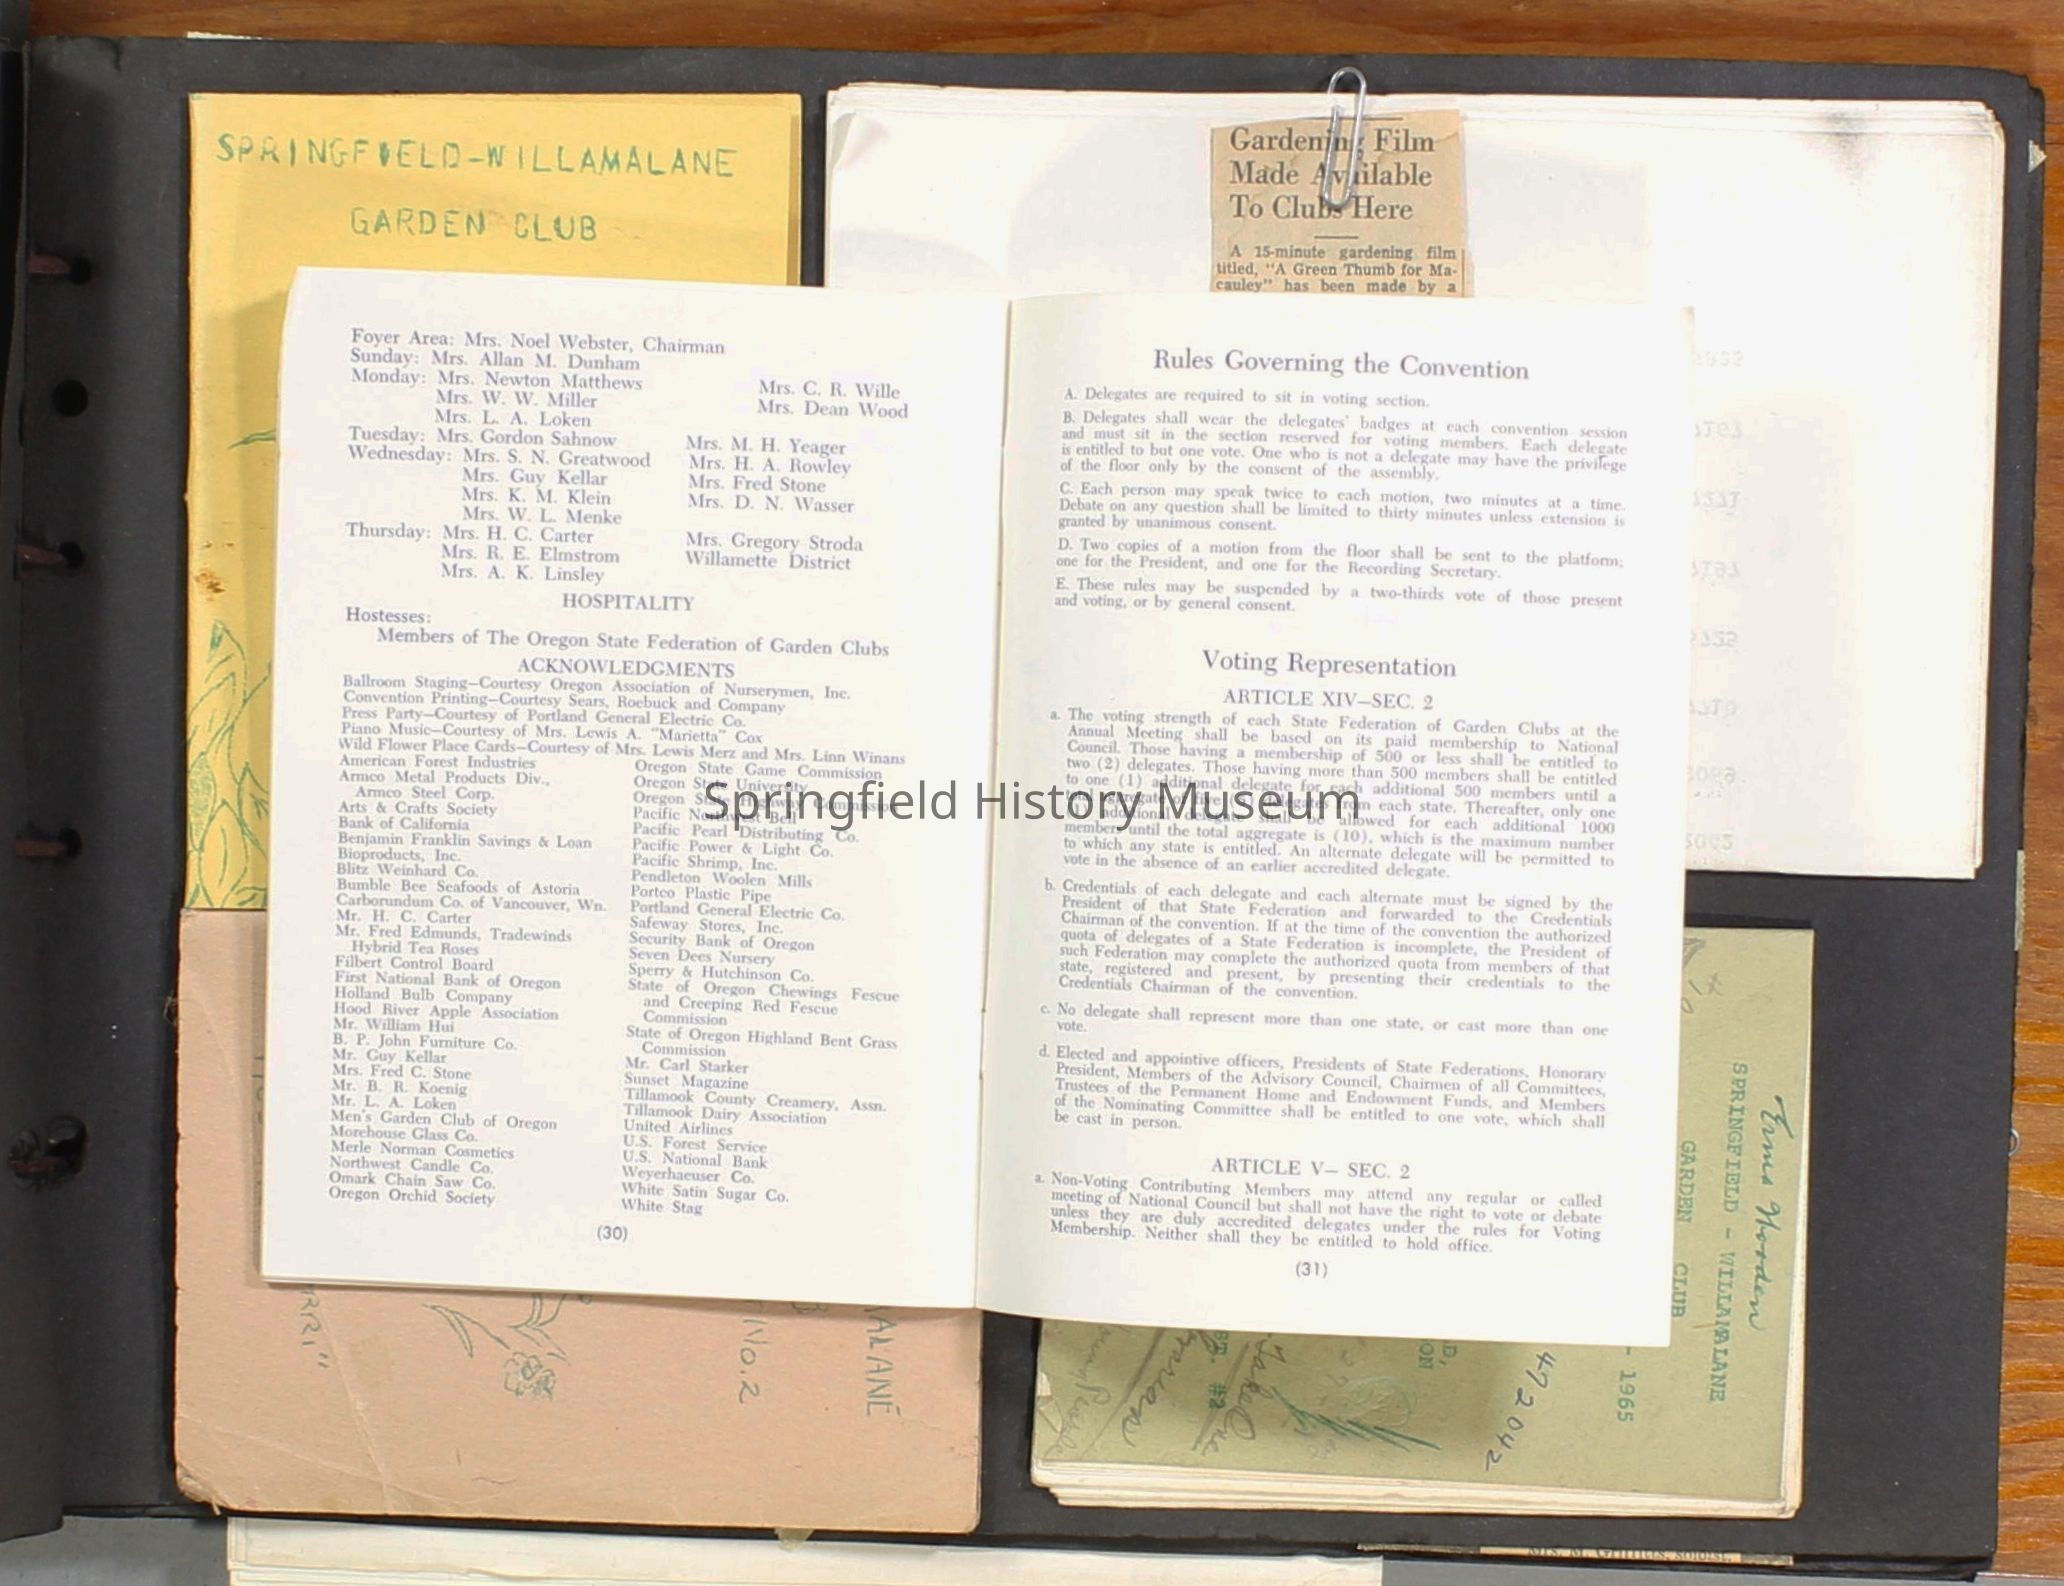 SPRINGFIELD-WILLAMALANE
GARDEN CLUB
Gardening Film
Made Available
To Clubs Here
A 15-minute gardening film
titled, "A Green Thumb for Ma-
cauley" has been made by a
Foyer Area: Mrs. Noel Webster, Chairman
Sunday: Mrs. Allan M. Dunham
Monday: Mrs. Newton Matthews
Mrs. W. W. Miller
Mrs. L. A. Loken
Mrs. C. R. Wille
Mrs. Dean Wood
Tuesday: Mrs. Gordon Sahnow
Mrs. M. H. Yeager
Wednesday: Mrs. S. N. Greatwood
Mrs. Guy Kellar
Mrs. K. M. Klein
Mrs. W. L. Menke
Mrs. H. A. Rowley
Mrs. Fred Stone
Mrs. D. N. Wasser
Thursday: Mrs. H. C. Carter
Mrs. R. E. Elmstrom
Mrs. A. K. Linsley
Mrs. Gregory Stroda
Willamette District
HOSPITALITY
Hostesses:
Members of The Oregon State Federation of Garden Clubs
ACKNOWLEDGMENTS
Ballroom Staging—Courtesy Oregon Association of Nurserymen, Inc.
Convention Printing—Courtesy Sears, Roebuck and Company
Press Party—Courtesy of Portland General Electric Co.
Piano Music—Courtesy of Mrs. Lewis A. "Marietta" Cox
Wild Flower Place Cards—Courtesy of Mrs. Lewis Merz and Mrs. Linn Winans
American Forest Industries
Armco Metal Products Div.,
Armco Steel Corp.
Arts & Crafts Society
Bank of California
Benjamin Franklin Savings & Loan
Bioproducts, Inc.
Blitz Weinhard Co.
Bumble Bee Seafoods of Astoria
Carborundum Co. of Vancouver, Wn.
Mr. H. C. Carter
Mr. Fred Edmunds, Tradewinds
Hybrid Tea Roses
Filbert Control Board
First National Bank of Oregon
Holland Bulb Company
Hood River Apple Association
Mr. William Hui
B. P. John Furniture Co.
Mr. Guy Kellar
Mrs. Fred C. Stone
Mr. B. R. Koenig
Mr. L. A. Loken
Men's Garden Club of Oregon
Morehouse Glass Co.
Merle Norman Cosmetics
Northwest Candle Co.
Omark Chain Saw Co.
Oregon Orchid Society
Oregon State Game Commission
Oregon State University
Oregon State Highway Commission
Pacific Northwest Bell
Pacific Pearl Distributing Co.
Pacific Power & Light Co.
Pacific Shrimp, Inc.
Pendleton Woolen Mills
Portco Plastic Pipe
Portland General Electric Co.
Safeway Stores, Inc.
Security Bank of Oregon
Seven Dees Nursery
Sperry & Hutchinson Co.
State of Oregon Chewings Fescue
and Creeping Red Fescue
Commission
State of Oregon Highland Bent Grass
Commission
Mr. Carl Starker
Sunset Magazine
Tillamook County Creamery, Assn.
Tillamook Dairy Association
United Airlines
U.S. Forest Service
U.S. National Bank
Weyerhaeuser Co.
White Satin Sugar Co.
White Stag
(30)
Rules Governing the Convention
A. Delegates are required to sit in voting section.
B. Delegates shall wear the delegates' badges at each convention session
and must sit in the section reserved for voting members. Each delegate
is entitled to but one vote. One who is not a delegate may have the privilege
of the floor only by the consent of the assembly.
C. Each person may speak twice to each motion, two minutes at a time.
Debate on any question shall be limited to thirty minutes unless extension is
granted by unanimous consent.
D. Two copies of a motion from the floor shall be sent to the platform;
one for the President, and one for the Recording Secretary.
E. These rules may be suspended by a two-thirds vote of those present
and voting, or by general consent.
Voting Representation
ARTICLE XIV—SEC. 2
a. The voting strength of each State Federation of Garden Clubs at the
Annual Meeting shall be based on its paid membership to National
Council. Those having a membership of 500 or less shall be entitled to
two (2) delegates. Those having more than 500 members shall be entitled
to one (1) additional delegate for each additional 500 members until a
total aggregate of five (5) delegates from each state. Thereafter, only one
(1) additional delegate shall be allowed for each additional 1000
members until the total aggregate is (10), which is the maximum number
to which any state is entitled. An alternate delegate will be permitted to
vote in the absence of an earlier accredited delegate.
b. Credentials of each delegate and each alternate must be signed by the
President of that State Federation and forwarded to the Credentials
Chairman of the convention. If at the time of the convention the authorized
quota of delegates of a State Federation is incomplete, the President of
such Federation may complete the authorized quota from members of that
state, registered and present, by presenting their credentials to the
Credentials Chairman of the convention.
c. No delegate shall represent more than one state, or cast more than one
vote.
d. Elected and appointive officers, Presidents of State Federations, Honorary
President, Members of the Advisory Council, Chairmen of all Committees,
Trustees of the Permanent Home and Endowment Funds, and Members
of the Nominating Committee shall be entitled to one vote, which shall
be cast in person.
ARTICLE V— SEC. 2
a. Non-Voting Contributing Members may attend any regular or called
meeting of National Council but shall not have the right to vote or debate
unless they are duly accredited delegates under the rules for Voting
Membership. Neither shall they be entitled to hold office.
(31)
Springfield History Museum
Erma Wooden
SPRINGFIELD - WILLAMALANE
GARDEN CLUB
- 1965
472042
#2
ALANE
NO.2
RRI"
Mrs. M. Griffitts, soloist,